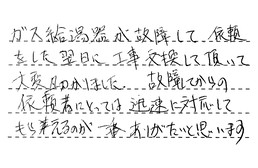 ガス給湯器が故障して 依頼
をした翌日に 工事交換して頂いて
大変助かりました。 故障してからの
依頼者にとっては 迅速に対応して
もらえるのが 一番 ありがたいと思います